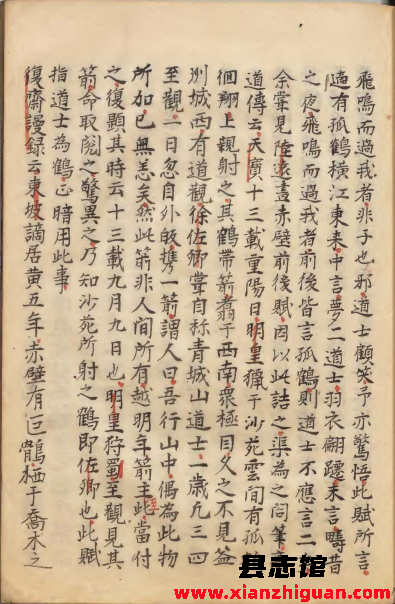 飛鳴而過我者非子也邪道士顧笑予亦驚悟此賦所言
適有孤鶴橫江東来中言夢二道士羽衣翩躚末言疇昔
之夜飛鳴而過我者前後皆言孤鶴則道士不應言二
余嘗見陸遠畫赤壁前後賦因以此詰之渠為之閣筆
道傳云天寶十三載重陽日明皇獵于沙苑雲間有孤
徊翔上親射之其鶴帶箭翥于西南衆極目久之不見益
洲城西有道觀徐佐卿嘗自称青城山道士一歲凡三四
至觀一日忽自外皈擕一箭謂人曰吾行山中偶為此物
所加已無恙矣然此箭非人間所有越明年箭主此當付
之復顯其時云十三載九月九日也明皇狩蜀至觀見其
箭命取閱之驚異之乃知沙苑所射之鶴即佐卿也此賦
指道士為鶴正暗用此事
復齋謾録云東坡謫居黄五年赤壁有巨鶻栖于喬木之
县志馆
www.xianzhiguan.com